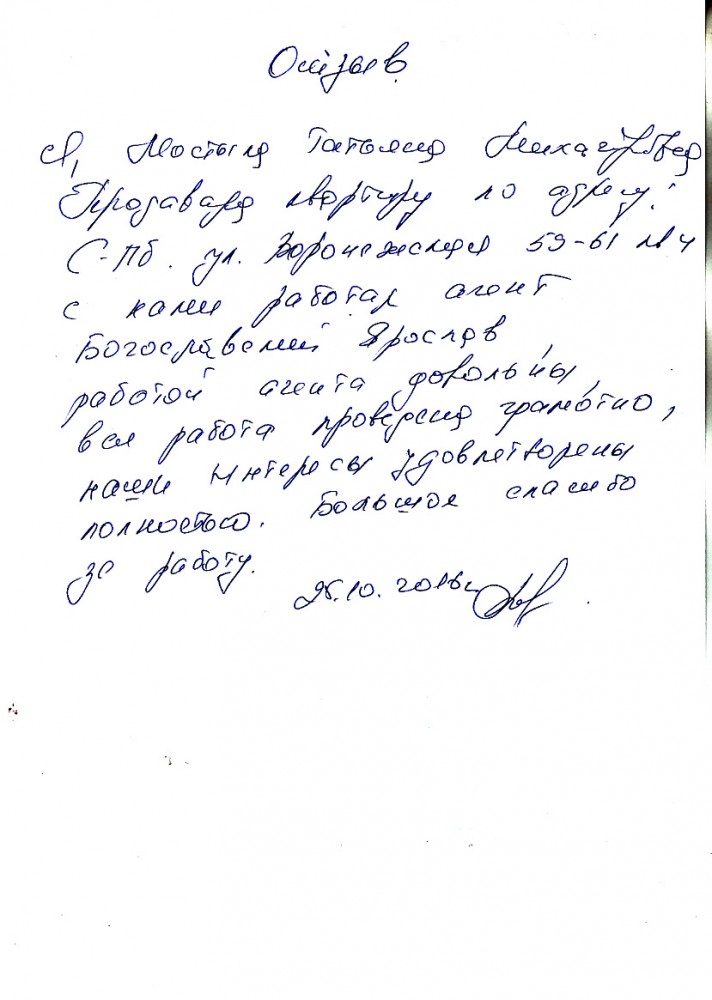 Отзыв.
Я, Мостыля Татьяна Михайловна
Продавала квартиру по адресу:
С-Пб. ул. Воронежская 59-61 кв 4
с нами работал агент
Богославский Ярослав,
работой агента довольны,
вся работа проведена грамотно,
наши интересы удовлетворены
полностью. Большое спасибо
за работу.
26.10.2016г.